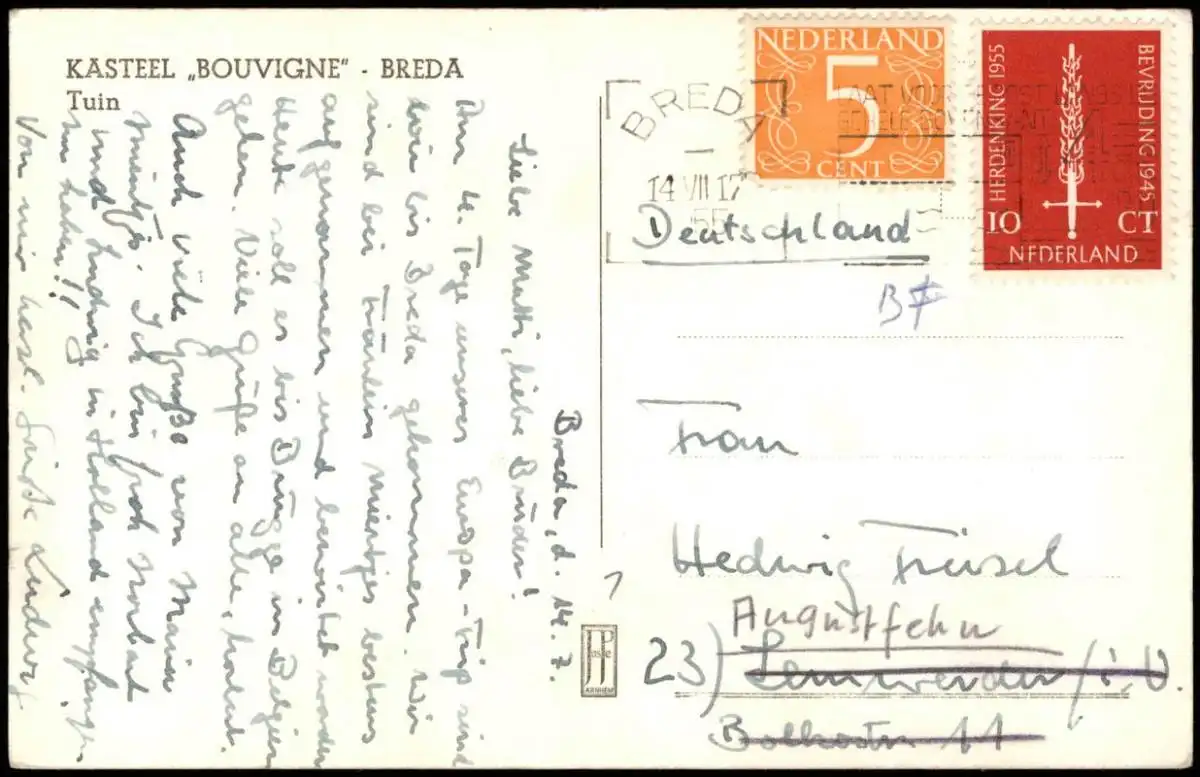 KASTEEL „BOUVIGNE" - BREDA
Tuin
Breda, d. 14. 7.
Liebe Mutti, liebe Brüder!
Am 4. Tage unserer Europa-Trip sind
wir bis Breda gekommen. Wir
sind bei Fräulein Mientjes bestens
aufgenommen und bewirtet worden
Heute soll es bis Brügge in Belgien
gehen. Viele Grüße an alle, Norbert.
Auch viele Grüße von Marien
Mientjes. Ich bin froh Norbert
und Ludwig in Holland empfangen
zu haben!!
Von mir herzl. Grüße Ludwig
NEDERLAND
5
CENT
HERDENKING 1955
BEVRIJDING 1945
10 CT
NEDERLAND
BREDA
14 VII 17
55
Deutschland
Frau
Hedwig Früsel
Augustfehn
23) Lemwerder / i. O.
Bolkostr. 11
JosPe
ARNHEM